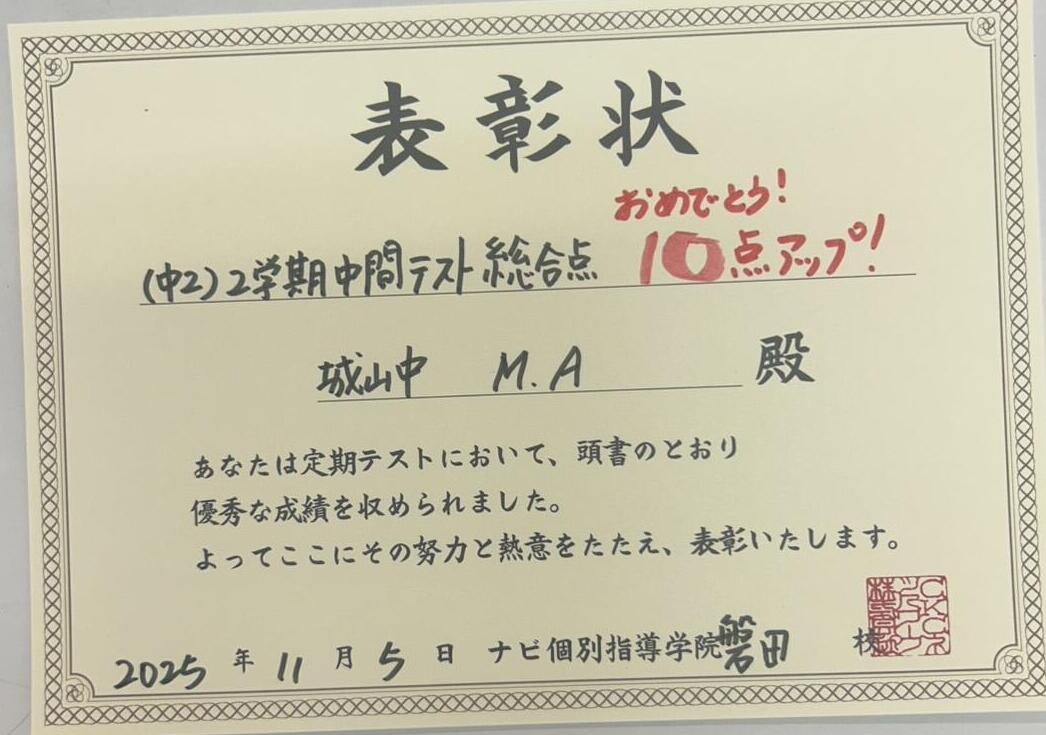 表彰状
おめでとう!
(中2)2学期中間テスト総合点 10点アップ!
城山中 M.A 殿
あなたは定期テストにおいて、頭書のとおり
優秀な成績を収められました。
よってここにその努力と熱意をたたえ、表彰いたします。
2025年11月5日 ナビ個別指導学院磐田校